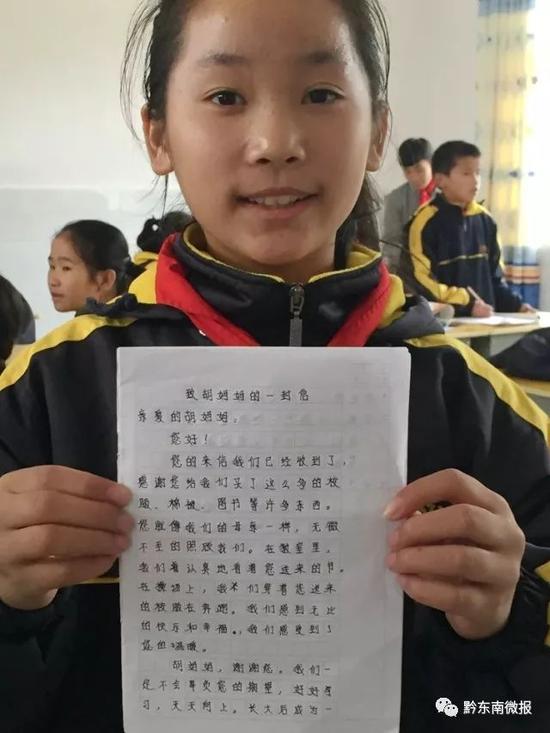 致胡姐姐的一封信
亲爱的胡姐姐:
您好!
您的来信我们已经收到了,
感谢您给我们买了这么多的衣
服、棉被、图书等许多东西。
您就像我们的母亲一样,无微
不至的照顾我们。在教室里,
我们看认真地看着您送来的书。
在操场上,我们穿着您送来
的衣服在奔跑。我们感到无比
的快乐和幸福。,我们感受到了
您的温暖。
胡姐姐,谢谢您。我们一
定不会辜负您的期望,好好学
习,天天向上。长大后成为一
黔东南微报